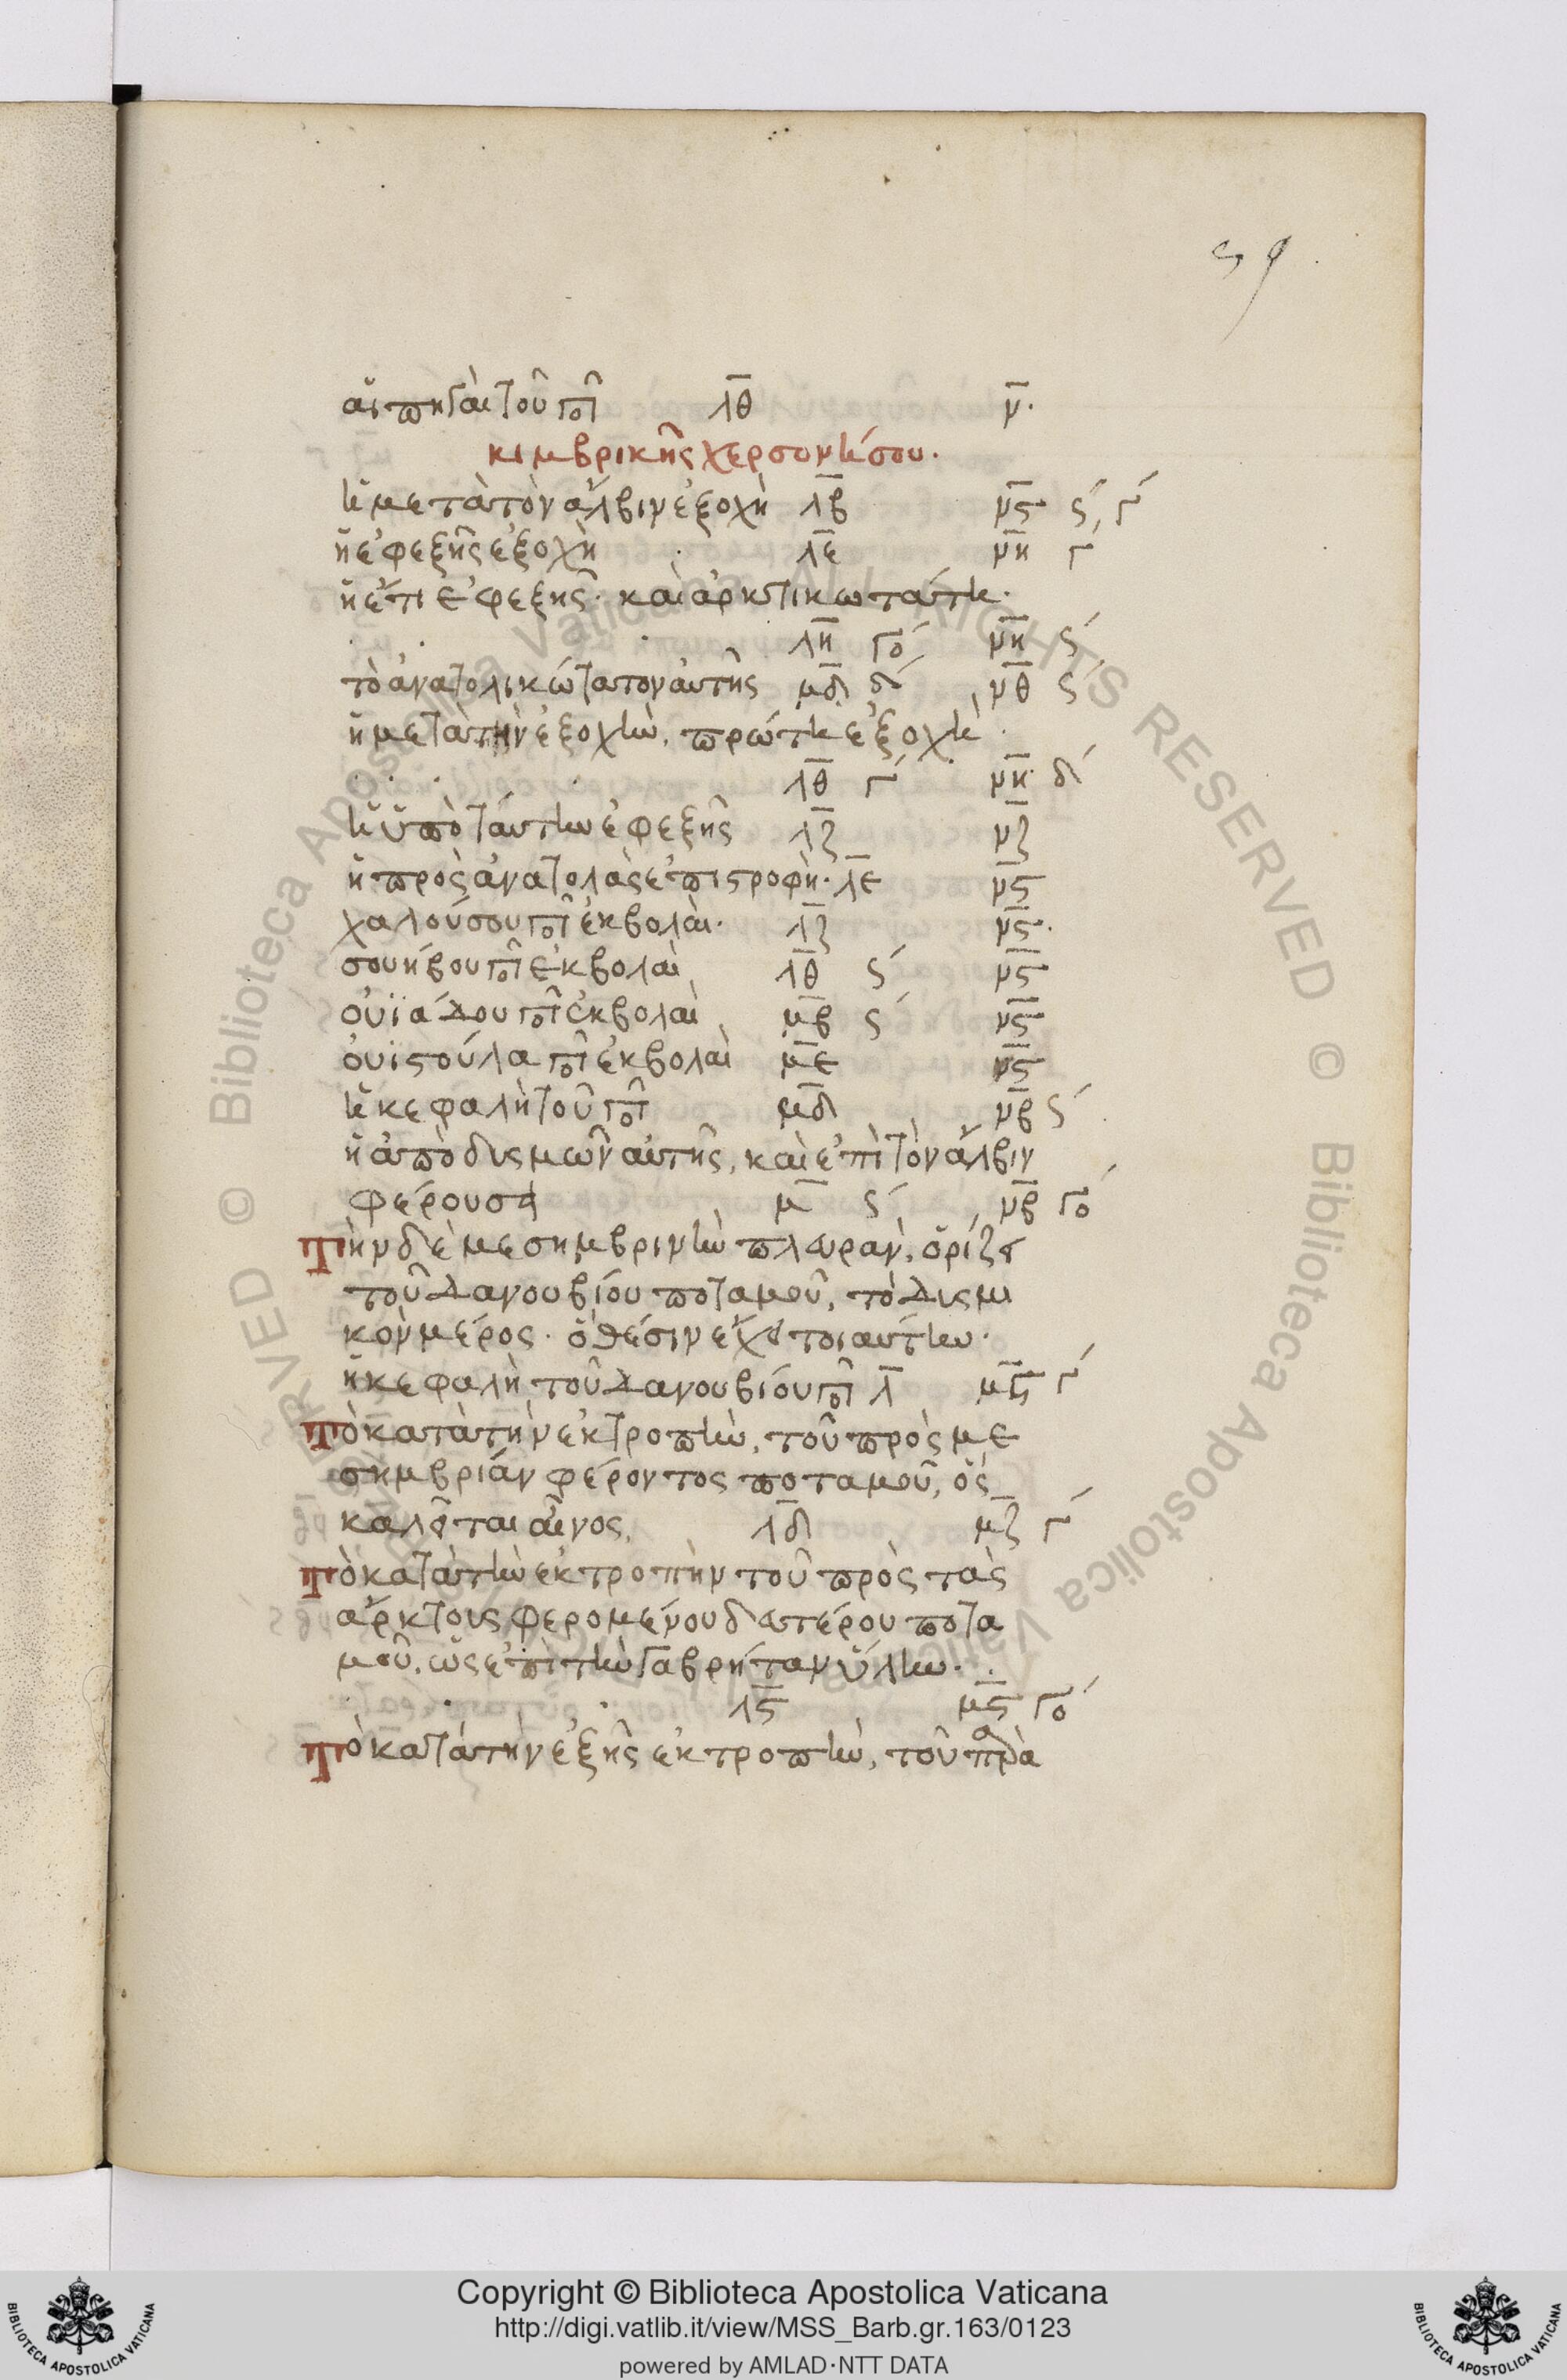 59
αἱ πηγαὶ τοῦ ποτ λθ ν.
κιμβρικῆς χερσονήσου.
ἡ μετὰ τὸν ἄλβιν ἐξοχὴ λβ νς ς΄ γ΄
ἡ ἐφεξῆς ἐξοχὴ λε νη γ΄
ἡ ἔτι ἐφεξῆς· καὶ ἀρκτικωτάτη·
λη γο΄ νη ς΄
τὸ ἀνατολικώτατον ἀυτῆς μδ δ΄ νθ ς
ἡ μετὰ τὴν ἐξοχὴν, πρώτη ἐξοχὴ.
λθ γ΄ νη δ΄
ἡ ὑπὸ ταύτην ἐφεξῆς λζ νζ
ἡ πρὸς ἀνατολὰς ἐπιστροφὴ. λε νς
χαλούσου ποτ ἐκβολὰι. λζ νς.
σουήβου ποτ ἐκβολαὶ λθ ς΄ νς
οὐϊάδου ποτ ἐκβολαὶ μβ ς΄ νς
ὀυιστούλα ποτ ἐκβολαὶ με νς
ἡ κεφαλὴ τοῦ ποτ μδ νβ ς΄
ἡ ἀπὸ δυσμῶν ἀυτῆς, καὶ ἐπὶ τὸν ἄλβιν
φέρουσα μ ς΄ νβ γο΄
Τὴν δὲ μεσημβρινὴν πλευρὰν, ὁρίζει
τοῦ δανουβίου ποταμοῦ, τὸ δυσμι
κὸν μέρος. ὃ θέσιν ἔχει τοιαύτην.
ἡ κεφαλὴ τοῦ δανουβίου ποτ λ μς γ΄
Τὸ κατὰ τὴν ἐκτροπὴν, τοῦ πρὸς με
σημβρίαν φέροντος ποταμοῦ, ὃς
καλεῖται αἶνος, λδ μζ γ΄
Τὸ κατὰ τὴν ἐκτροπὴν τοῦ πρὸς τὰς
ἄρκτους φερομένου δευτέρου ποτα
μοῦ, ὡς ἐπὶ τὴν γαβρήταν ὕλην.
λς μς γο΄
Τὸ κατὰ τὴν ἑξῆς ἐκτροπὴν, τοῦ παρὰ
Copyright © Biblioteca Apostolica Vaticana
http://digi.vatlib.it/view/MSS_Barb.gr.163/0123
powered by AMLAD·NTT DATA
BIBLIOTECA APOSTOLICA VATICANA
BIBLIOTECA APOSTOLICA VATICANA